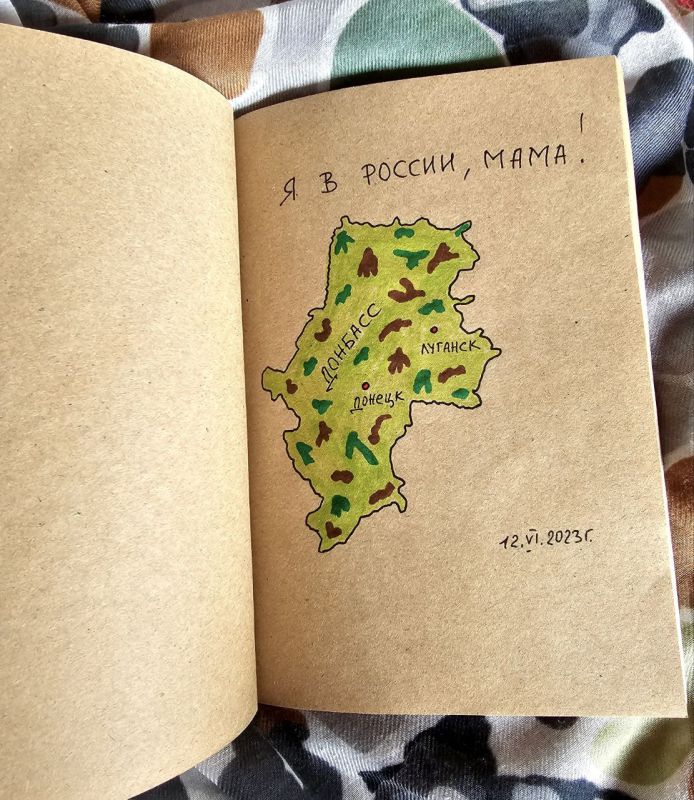 Я В РОССИИ, МАМА!
ДОНБАСС
ЛУГАНСК
ДОНЕЦК
12.VI.2023г.